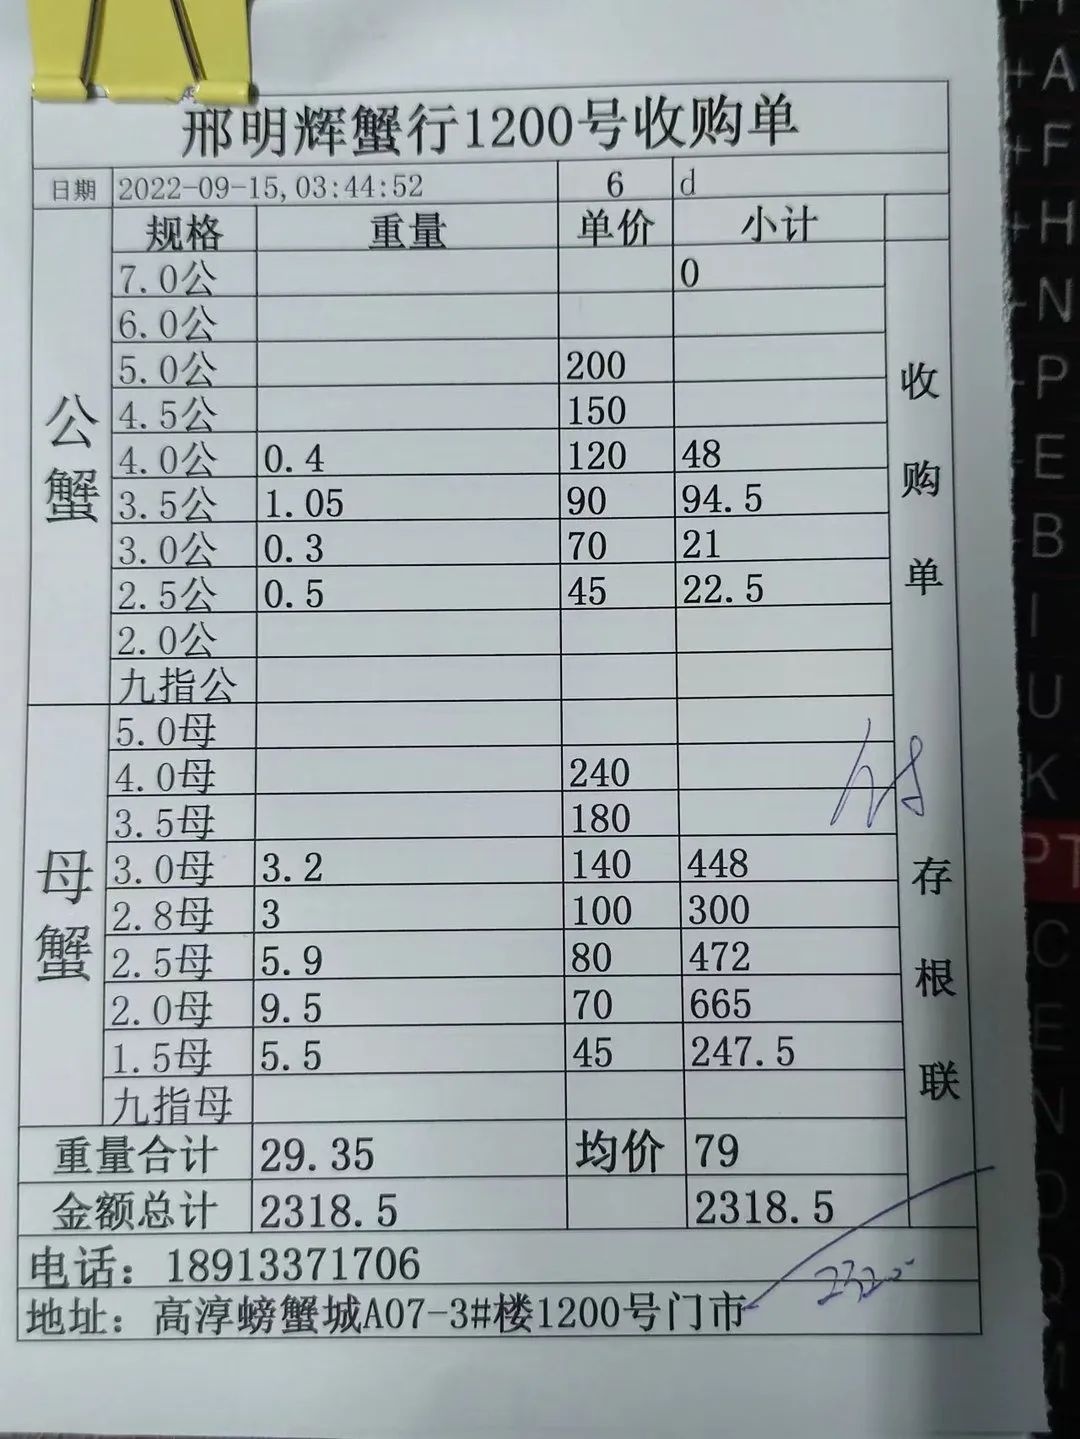 邢明辉蟹行1200号收购单
日期 2022-09-15,03:44:52 6 d
规格 重量 单价 小计
公蟹
7.0公 0
6.0公
5.0公 200
4.5公 150
4.0公 0.4 120 48
3.5公 1.05 90 94.5
3.0公 0.3 70 21
2.5公 0.5 45 22.5
2.0公
九指公
母蟹
5.0母
4.0母 240
3.5母 180
3.0母 3.2 140 448
2.8母 3 100 300
2.5母 5.9 80 472
2.0母 9.5 70 665
1.5母 5.5 45 247.5
九指母
重量合计 29.35 均价 79
金额总计 2318.5 2318.5
电话：18913371706
地址：高淳螃蟹城A07-3#楼1200号门市
收购单 存根联
+A
+F
+H
N
P
E
B
I
U
K
PT
C
E
N
O
Q
M